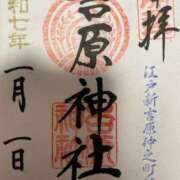 拝
江戸新吉原仲之町
吉原神社
和七年
一月一日